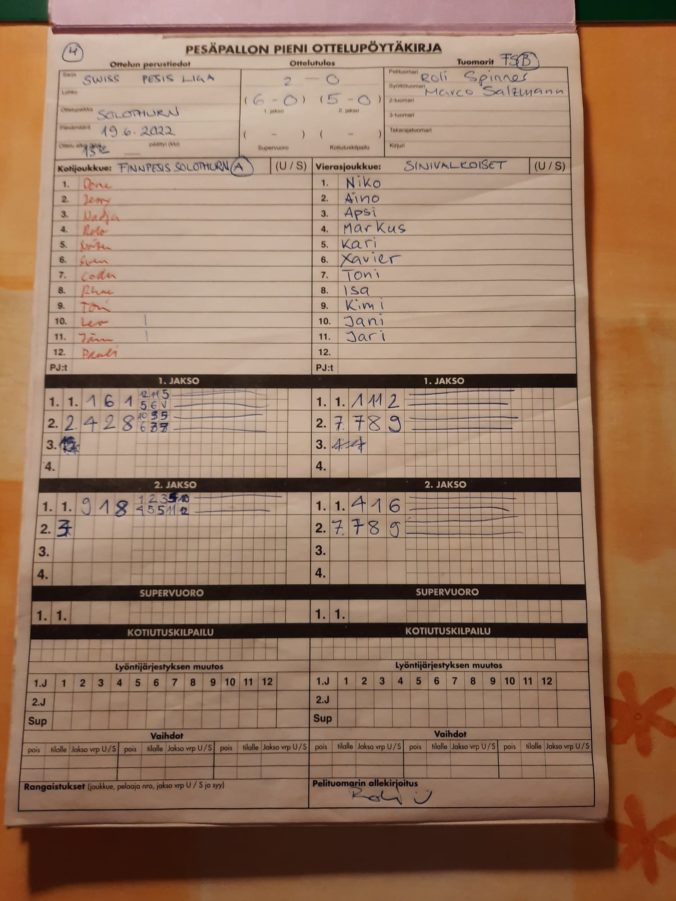 4
PESÄPALLON PIENI OTTELUPÖYTÄKIRJA
Ottelun perustiedot
Ottelutulos
Tuomarit FS B
Sarja SWISS PESIS LIGA
2 - 0
Pelituomari Roli Spinner
Lohko
(6 - 0) (5 - 0)
Syöttötuomari Marco Salzmann
Ottelupaikka SOLOTHURN
1. jakso 2. jakso
2-tuomari
Päivämäärä 19.6.2022
( - ) ( - )
3-tuomari
Takarajatuomari
Supervuoro Kotiutuskilpailu
Kirjuri
Kotijoukkue: FINNPESIS SOLOTHURN A (U / S)
Vierasjoukkue: SINIVALKOISET (U / S)
1. Dene
1. Niko
2. Jenny
2. Aino
3. Nadja
3. Apsi
4. Rolo
4. Markus
5.
5. Kari
6. Sven
6. Xavier
7.
7. Toni
8.
8. Isa
9. Toni
9. Kimi
10. Leo
10. Jani
11.
11. Jari
12.
12.
PJ:t
PJ:t
1. JAKSO
1. JAKSO
1. 1. 1 6 1
1. 1. 1 1 2
2. 2 4 2 8
2. 7 7 8 9
3.
3.
4.
4.
2. JAKSO
2. JAKSO
1. 1. 9 1 8
1. 1. 4 1 6
2.
2. 7 7 8 9
3.
3.
4.
4.
SUPERVUORO
SUPERVUORO
1. 1.
1. 1.
KOTIUTUSKILPAILU
KOTIUTUSKILPAILU
Lyöntijärjestyksen muutos
Lyöntijärjestyksen muutos
1.J 1 2 3 4 5 6 7 8 9 10 11 12
1.J 1 2 3 4 5 6 7 8 9 10 11 12
2.J
2.J
Sup
Sup
Vaihdot
Vaihdot
pois tilalle Jakso vrp U / S pois tilalle Jakso vrp U / S pois tilalle Jakso vrp U / S
pois tilalle Jakso vrp U / S pois tilalle Jakso vrp U / S pois tilalle Jakso vrp U / S
Rangaistukset (joukkue, pelaaja nro, jakso vrp U / S ja syy)
Pelituomarin allekirjoitus